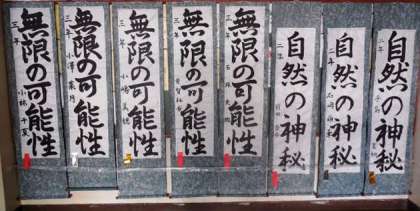 自然の神秘
二年
自然の神秘
二年
自然の神秘
二年
無限の可能性
三年
無限の可能性
三年
無限の可能性
三年
無限の可能性
三年
無限の可能性
三年 小林